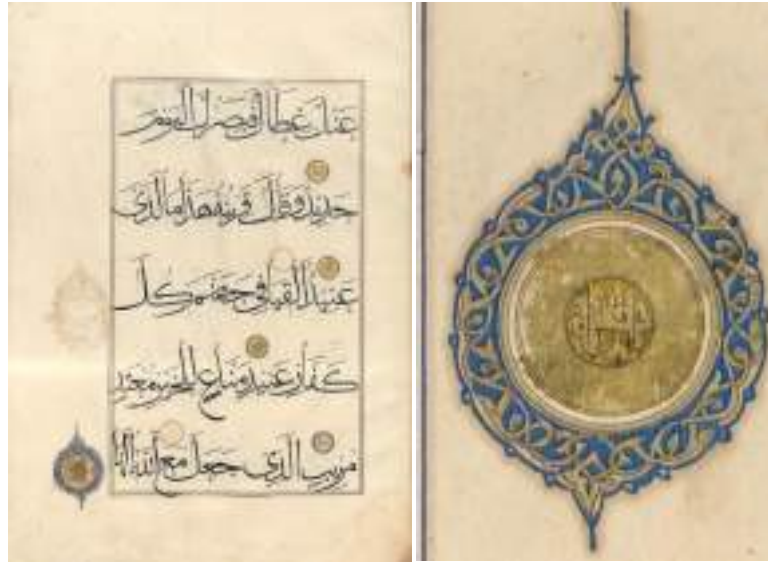 عنك غطاك فبصرك اليوم
حديد وقال قرينه هذا ما لدي
عتيد القيا في جهنم كل
كفار عنيد مناع للخير معتد
مريب الذي جعل مع الله الها